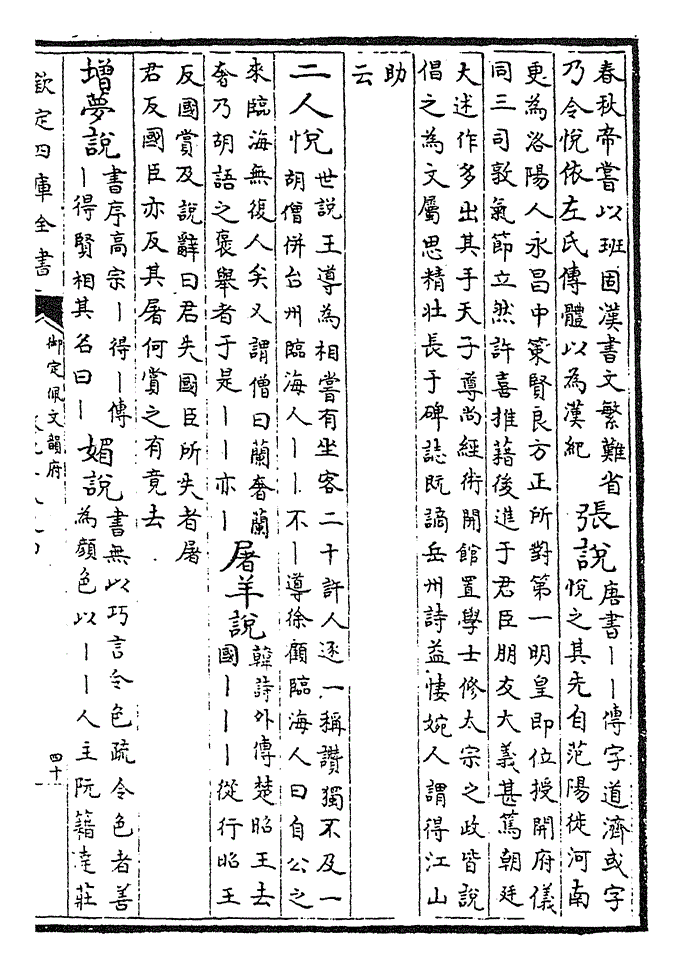 春秋帝嘗以班固漢書文繁難省
乃令悅依左氏傳體以為漢紀
張說
唐書丨丨傳字道濟或字
悅之其先自范陽徙河南
更為洛陽人永昌中策賢良方正所對第一明皇即位授開府儀
同三司敦氣節立然許喜推藉後進于君臣朋友大義甚篤朝廷
大述作多出其手天子尊尚經術開館置學士修太宗之政皆說
倡之為文屬思精壯長于碑誌既謫岳州詩益悽婉人謂得江山
助
云
二人悅
世說王導為相嘗有坐客二十許人逐一稱讚獨不及一
胡僧併台州臨海人丨丨不丨導徐顧臨海人曰自公之
來臨海無復人矣又謂僧曰蘭奢蘭
奢乃胡語之褒舉者于是丨丨亦丨
屠羊說
韓詩外傳楚昭王去
國丨丨丨從行昭王
反國賞及說辭曰君失國臣所失者屠
君反國臣亦反其屠何賞之有竟去
增夢說
書序高宗丨得丨傅
丨得賢相其名曰丨
媚說
書無以巧言令色疏令色者善
為顏色以丨丨人主阮籍達莊
欽定四庫全書
御定佩文韻府
四十